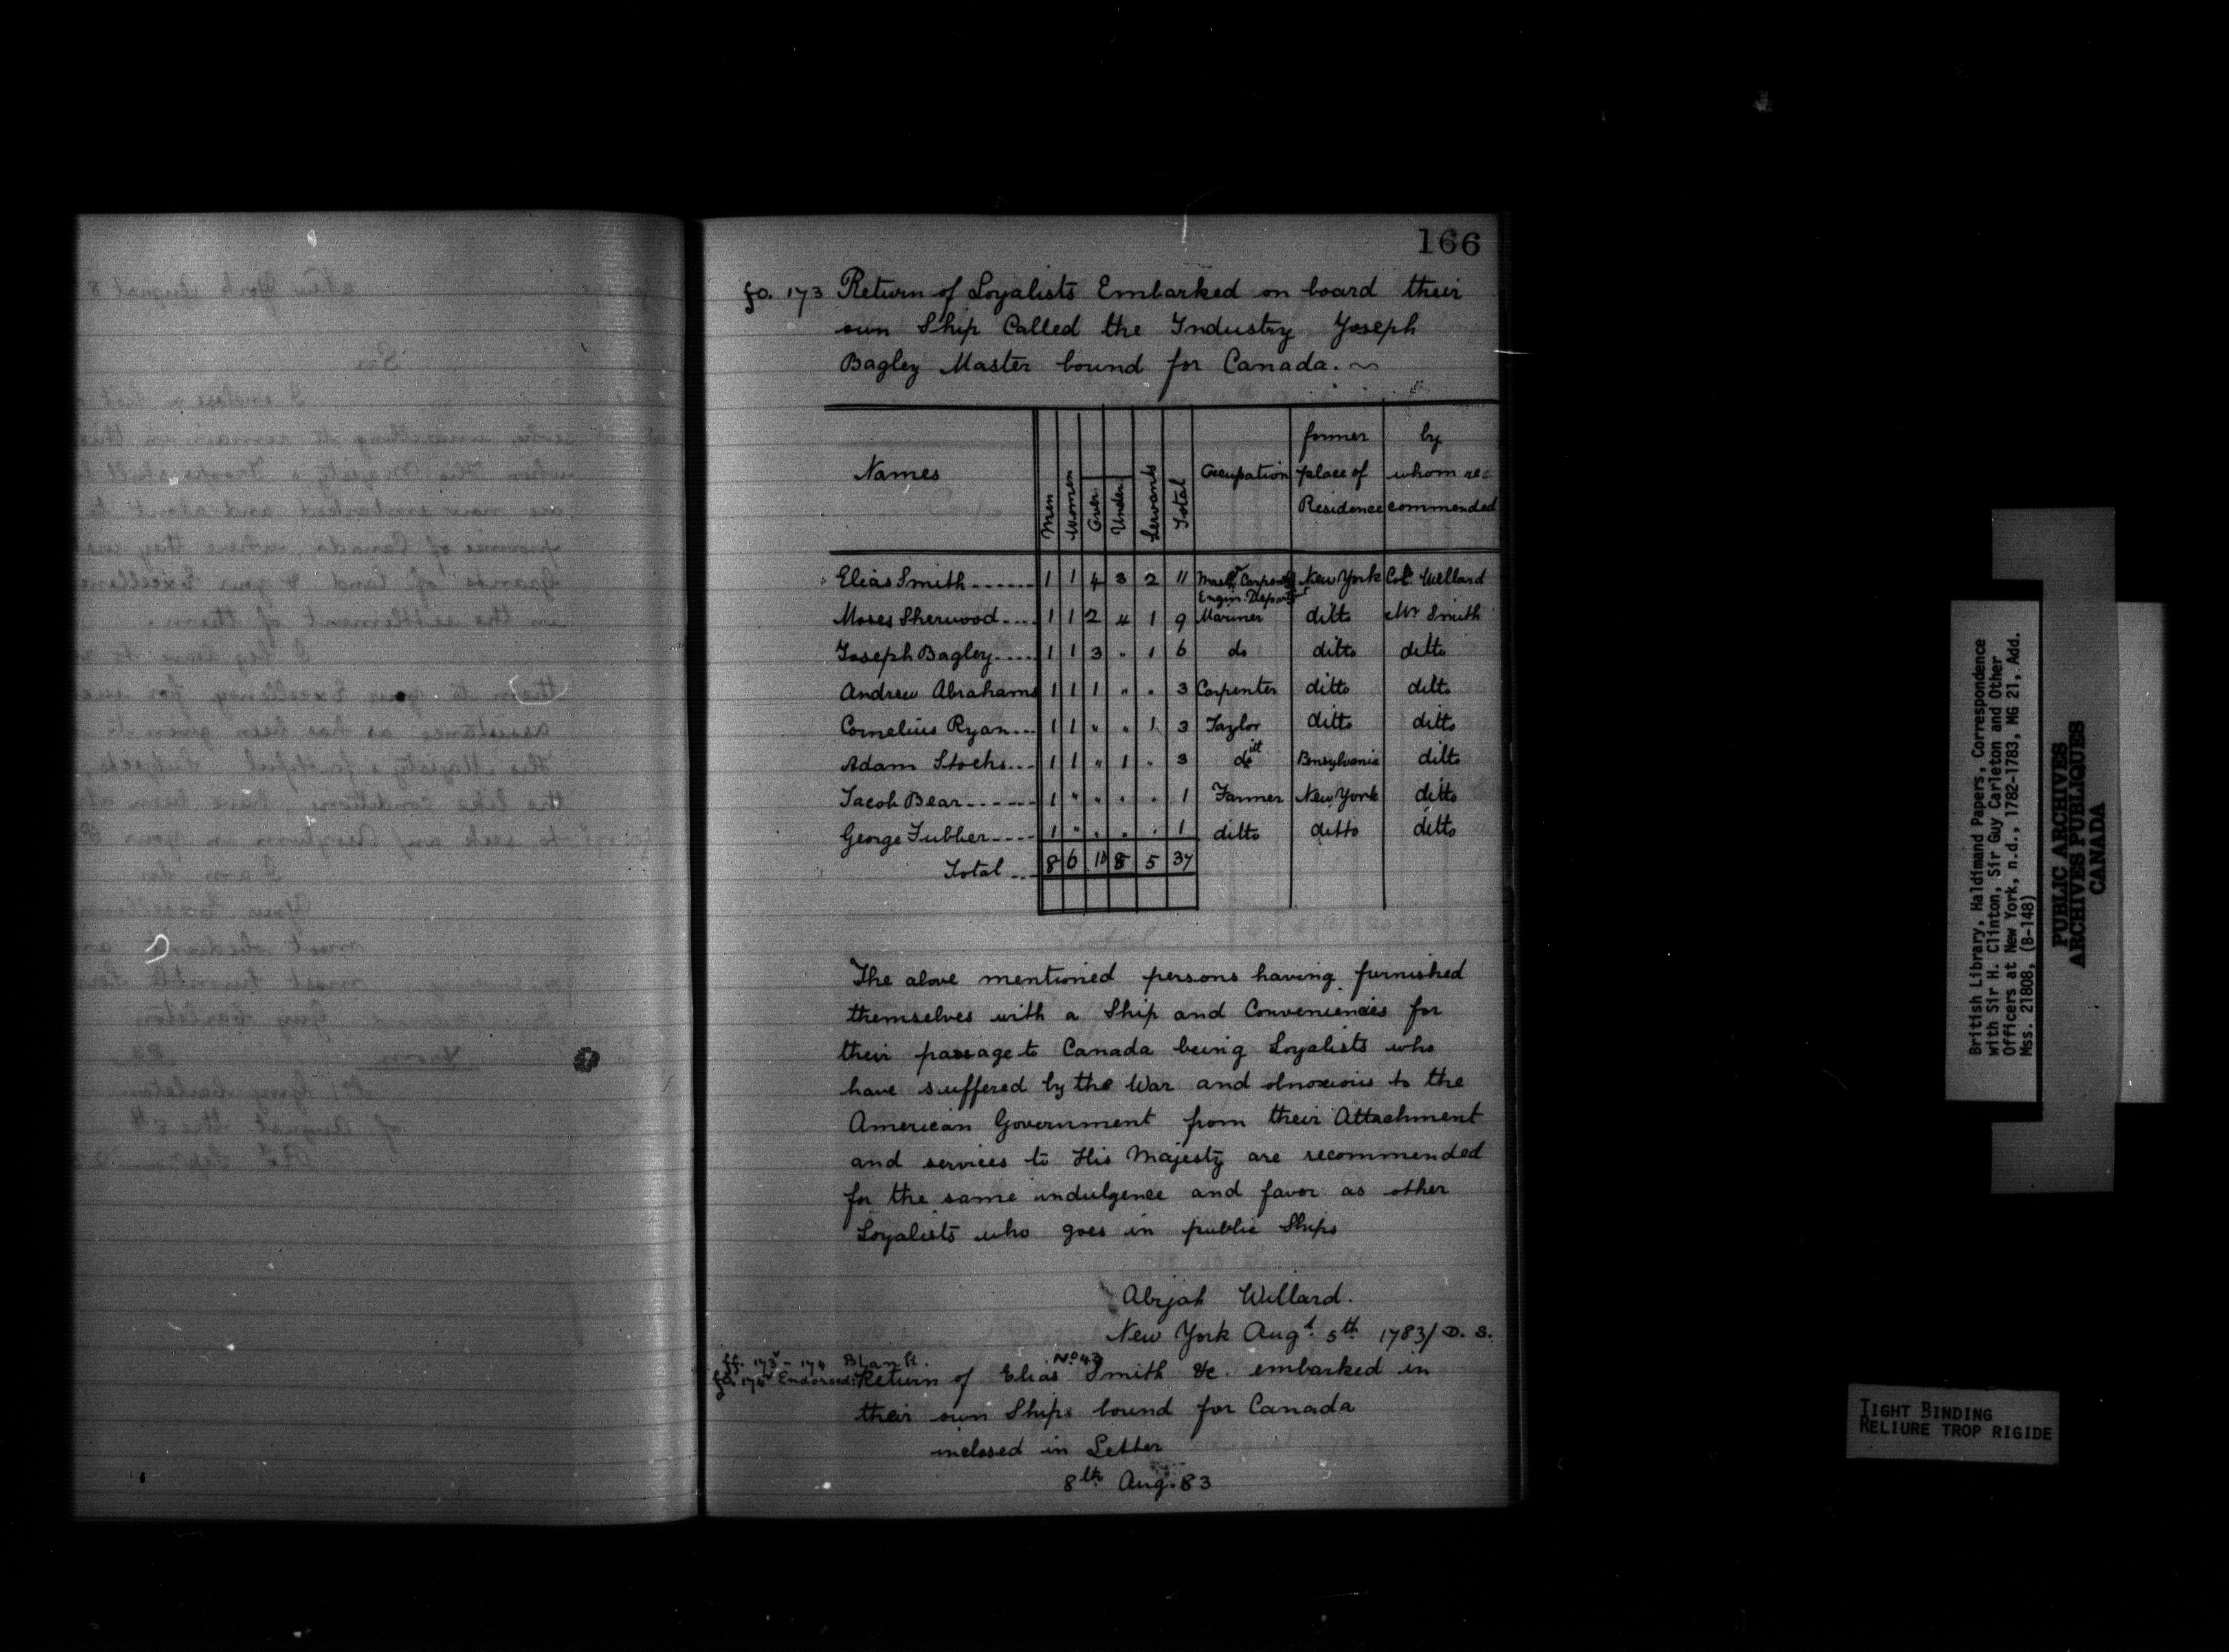 166
fo. 173 Return of Loyalists Embarked on board their
own Ship Called the Industry Joseph
Bagley Master bound for Canada. ~
Names Men Women Over Under Servants Total Occupation former place of Residence by whom re= commended
Elias Smith....... 1 1 4 3 2 11 Mastr Carpentr Engin. Departt New York Col. Willard
Moses Sherwood.... 1 1 2 4 1 9 Mariner ditto Mr Smith
Joseph Bagley..... 1 1 3 " 1 6 do ditto ditto
Andrew Abrahams 1 1 1 " " 3 Carpenter ditto ditto
Cornelius Ryan... 1 1 " " 1 3 Taylor ditto ditto
Adam Stocks... 1 1 " 1 " 3 do Pensylvania ditto
Jacob Bear....... 1 " " " " 1 Farmer New York ditto
George Fubber.... 1 " " " " 1 ditto ditto ditto
Total... 8 6 10 8 5 37
The above mentioned persons having furnished
themselves with a Ship and Conveniencies for
their passage to Canada being Loyalists who
have suffered by the War and obnoxious to the
American Government from their Attachment
and services to His Majesty are recommended
for the same indulgence and favor as other
Loyalists who goes in public Ships
Abijah Willard.
New York Augt 5th 1783/ D. S.
ff. 173v - 174 Blank.
No 43
fo. 174v Endorsed: Return of Elias Smith &c. embarked in
their own Ships bound for Canada
inclosed in Letter
8th Aug. 83
British Library, Haldimand Papers, Correspondence
with Sir H. Clinton, Sir Guy Carleton and Other
Officers at New York, n.d., 1782-1783, MG 21, Add.
Mss. 21808, (B-148)
PUBLIC ARCHIVES
ARCHIVES PUBLIQUES
CANADA
TIGHT BINDING
RELIURE TROP RIGIDE